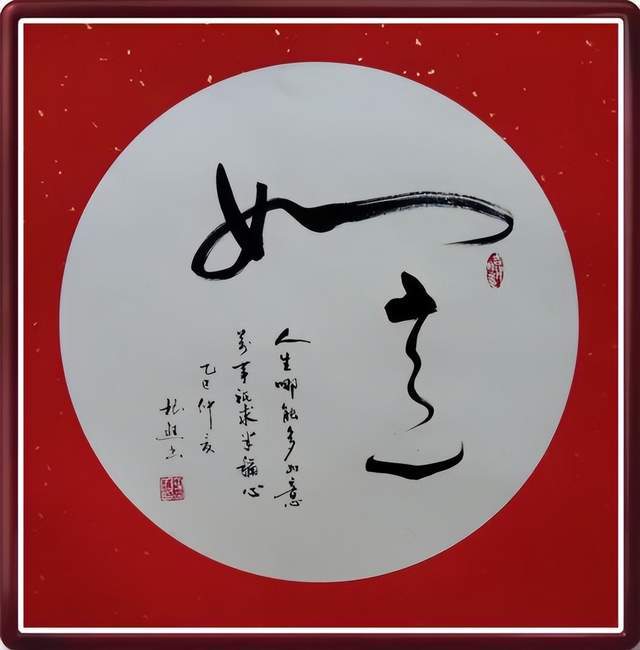 如意
人生哪能多如意
萬事祇求半稱心
乙巳仲夏
书